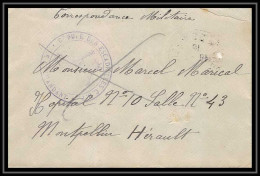 Correspondance Militaire
Monsieur Marcel Marical
Hopital N°70 Salle N°43
Montpellier Hérault